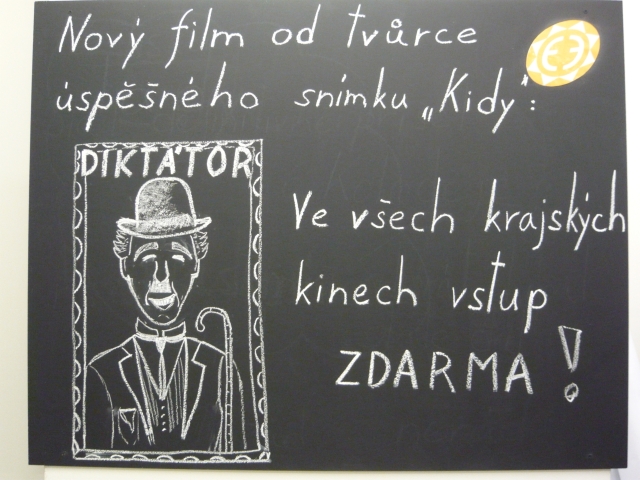 Nový film od tvůrce
úspěšného snímku „Kidy“:
DIKTÁTOR
Ve všech krajských
kinech vstup
ZDARMA!